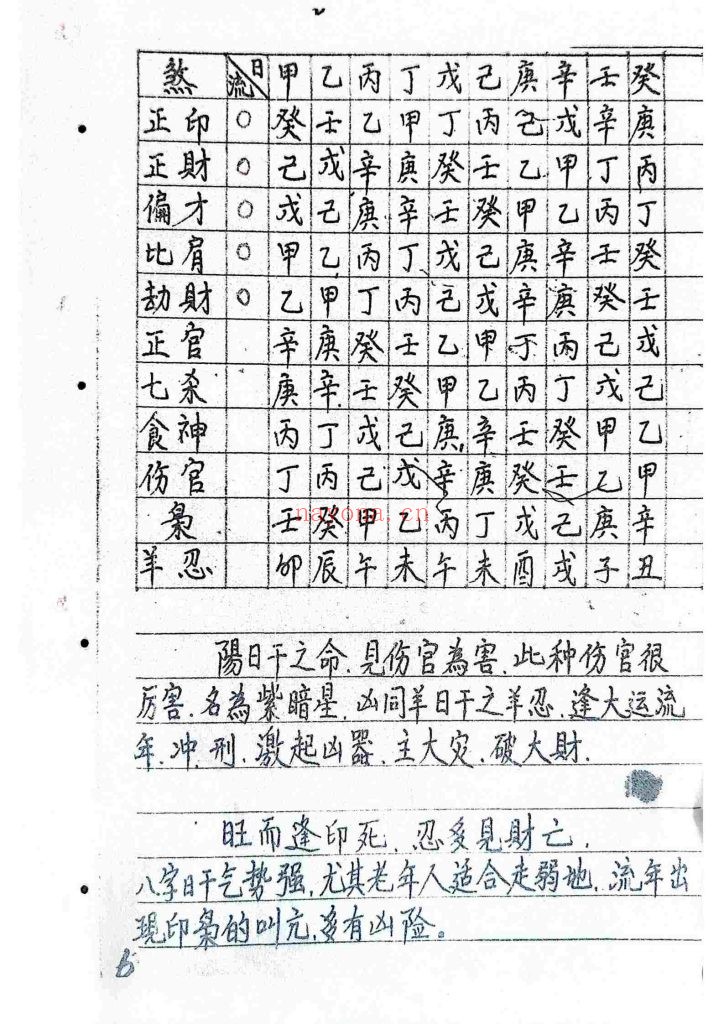 煞 流日 甲 乙 丙 丁 戊 己 庚 辛 壬 癸
正印 ○ 癸 壬 乙 甲 丁 丙 己 戊 辛 庚
正財 ○ 己 戊 辛 庚 癸 壬 乙 甲 丁 丙
偏才 ○ 戊 己 庚 辛 壬 癸 甲 乙 丙 丁
比肩 ○ 甲 乙 丙 丁 戊 己 庚 辛 壬 癸
劫財 ○ 乙 甲 丁 丙 己 戊 辛 庚 癸 壬
正官 辛 庚 癸 壬 乙 甲 丁 丙 己 戊
七杀 庚 辛 壬 癸 甲 乙 丙 丁 戊 己
食神 丙 丁 戊 己 庚 辛 壬 癸 甲 乙
伤官 丁 丙 己 戊 辛 庚 癸 壬 乙 甲
梟 壬 癸 甲 乙 丙 丁 戊 己 庚 辛
nayona.cn
羊忍 卯 辰 午 未 午 未 酉 戌 子 丑
陽日干之命.見伤官為害.此种伤官很
厉害.名為紫暗星.凶同羊日干之羊忍.逢大运流
年.冲.刑.激起凶器.主大灾.破大財.
旺而逢印死.忍多見財亡.
八字日干气势强.尤其老年人适合走弱地.流年出
現印梟的叫亢.多有凶险。
6